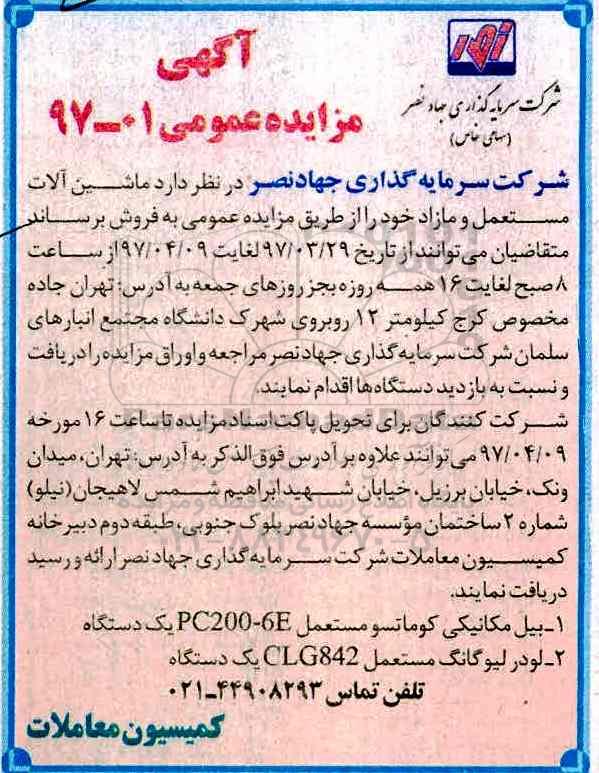 آگهی
مزایده عمومی ۰۱-۹۷
شرکت سرمایه گذاری جهاد نصر
(سهامی خاص)
شرکت سرمایه گذاری جهاد نصر در نظر دارد ماشین آلات
مستعمل و مازاد خود را از طریق مزایده عمومی به فروش برساند
متقاضیان می توانند از تاریخ ۹۷/۰۳/۲۹ لغایت ۹۷/۰۴/۰۹ از ساعت
۸ صبح لغایت ۱۶ همه روزه بجز روزهای جمعه به آدرس: تهران جاده
مخصوص کرج کیلومتر ۱۲ روبروی شهرک دانشگاه مجتمع انبارهای
سلمان شرکت سرمایه گذاری جهاد نصر مراجعه و اوراق مزایده را دریافت
و نسبت به بازدید دستگاه ها اقدام نمایند.
شرکت کنندگان برای تحویل پاکت اسناد مزایده تا ساعت ۱۶ مورخه
۹۷/۰۴/۰۹ می توانند علاوه بر آدرس فوق الذکر به آدرس: تهران، میدان
ونک، خیابان برزیل، خیابان شهید ابراهیم شمس لاهیجان (نیلو)
شماره ۲ ساختمان مؤسسه جهاد نصر بلوک جنوبی، طبقه دوم دبیرخانه
کمیسیون معاملات شرکت سرمایه گذاری جهاد نصر ارائه و رسید
دریافت نمایند.
۱-بیل مکانیکی کوماتسو مستعمل PC200-6E یک دستگاه
۲-لودر لیوگانگ مستعمل CLG842 یک دستگاه
تلفن تماس ۴۴۹۰۸۲۹۳-۰۲۱
کمیسیون معاملات